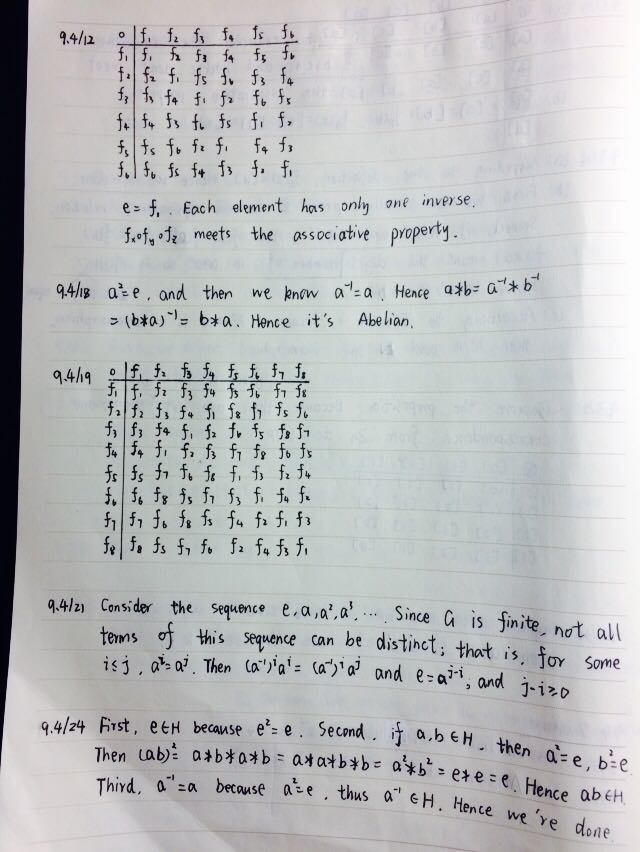 9.4/12 o | f₁ f₂ f₃ f₄ f₅ f₆
f₁ | f₁ f₂ f₃ f₄ f₅ f₆
f₂ | f₂ f₁ f₅ f₆ f₃ f₄
f₃ | f₃ f₄ f₁ f₂ f₆ f₅
f₄ | f₄ f₃ f₆ f₅ f₁ f₂
f₅ | f₅ f₆ f₂ f₁ f₄ f₃
f₆ | f₆ f₅ f₄ f₃ f₂ f₁
e = f₁. Each element has only one inverse.
fₓ∘fᵧ∘f_z meets the associative property.
9.4/18 a²=e, and then we know a⁻¹=a. Hence a*b= a⁻¹*b⁻¹
= (b*a)⁻¹= b*a. Hence it's Abelian.
9.4/19 o | f₁ f₂ f₃ f₄ f₅ f₆ f₇ f₈
f₁ | f₁ f₂ f₃ f₄ f₅ f₆ f₇ f₈
f₂ | f₂ f₃ f₄ f₁ f₈ f₇ f₅ f₆
f₃ | f₃ f₄ f₁ f₂ f₆ f₅ f₈ f₇
f₄ | f₄ f₁ f₂ f₃ f₇ f₈ f₆ f₅
f₅ | f₅ f₇ f₆ f₈ f₁ f₃ f₂ f₄
f₆ | f₆ f₈ f₅ f₇ f₃ f₁ f₄ f₂
f₇ | f₇ f₆ f₈ f₅ f₄ f₂ f₁ f₃
f₈ | f₈ f₅ f₇ f₆ f₂ f₄ f₃ f₁
9.4/21 Consider the sequence e,a,a²,a³, ···. Since G is finite, not all
terms of this sequence can be distinct; that is, for some
i≤j, aⁱ=aʲ. Then (a⁻¹)ⁱaⁱ= (a⁻¹)ⁱaʲ and e=aʲ⁻ⁱ, and j-i≥0
9.4/24 First, e∈H because e²=e. Second, if a,b∈H, then a²=e, b²=e.
Then (ab)²= a*b*a*b = a*a*b*b= a²*b²= e*e=e. Hence ab∈H.
Third, a⁻¹=a because a²=e, thus a⁻¹∈H. Hence we're done.